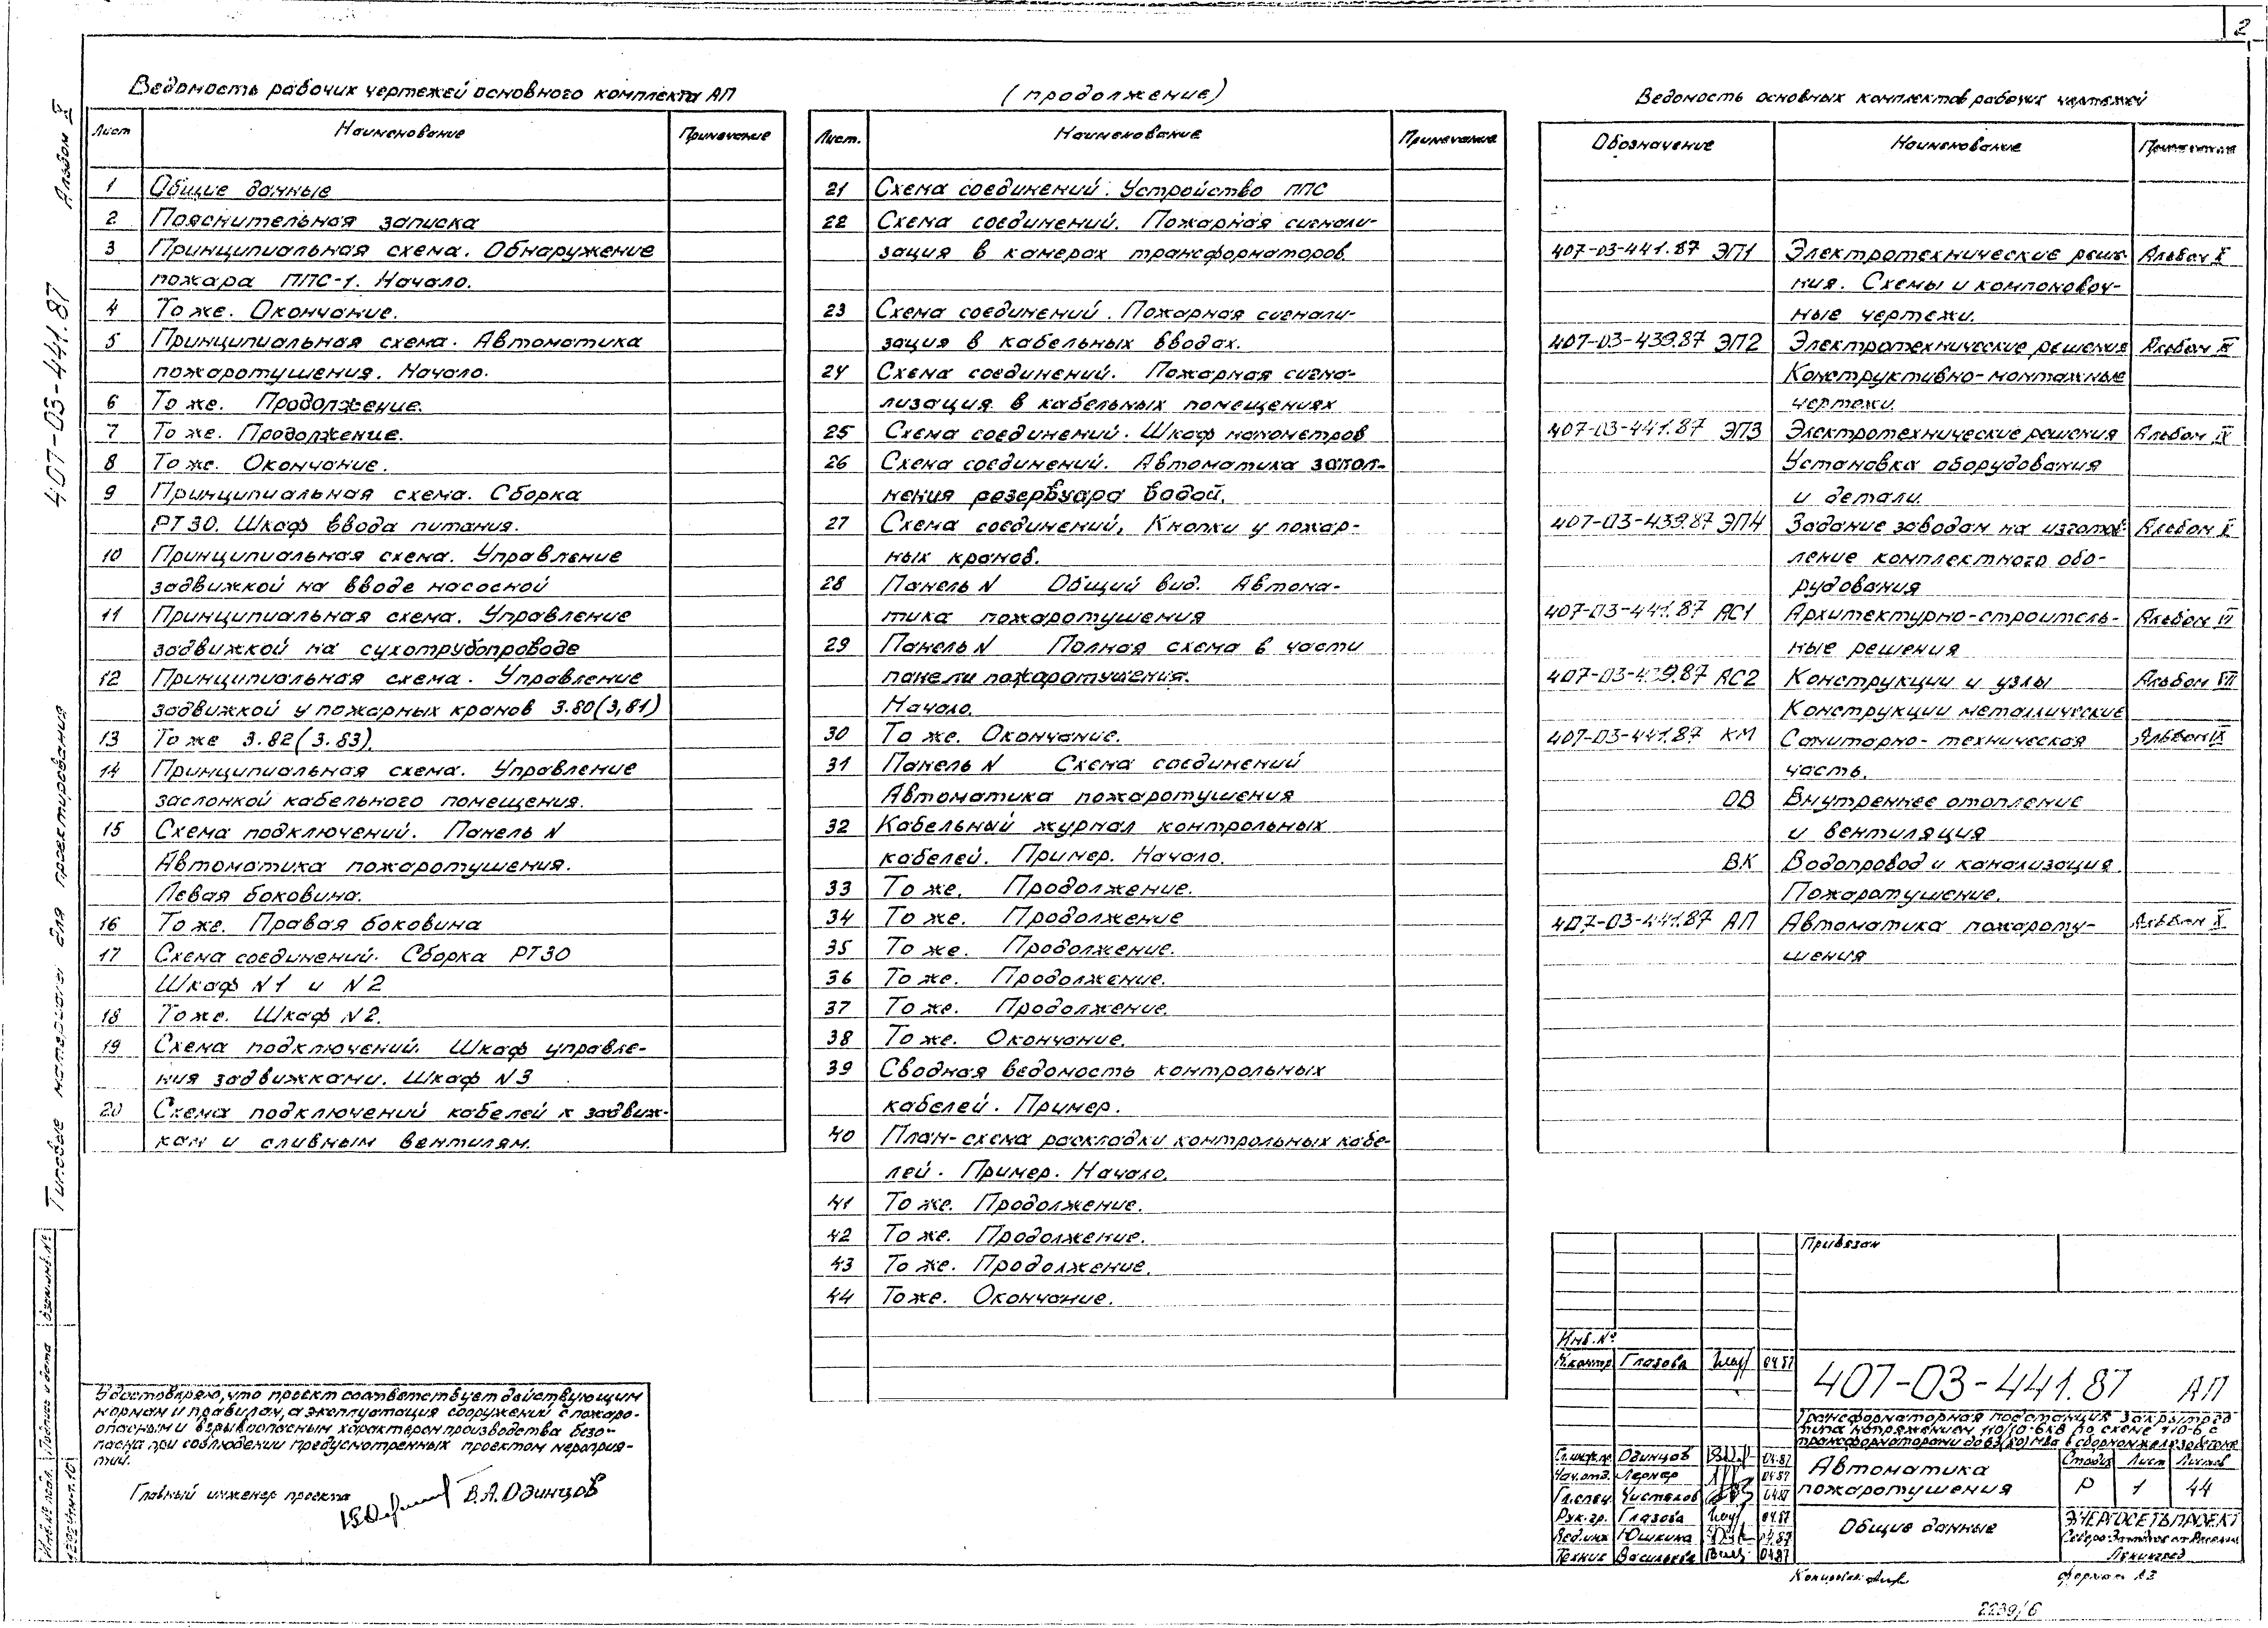 2
Ведомость рабочих чертежей основного комплекта АП
Лист Наименование Примечание
1 Общие данные
2 Пояснительная записка
3 Принципиальная схема. Обнаружение
пожара ППС-1. Начало.
4 То же. Окончание.
5 Принципиальная схема. Автоматика
пожаротушения. Начало.
6 То же. Продолжение.
7 То же. Продолжение.
8 То же. Окончание.
9 Принципиальная схема. Сборка
РТ30. Шкаф ввода питания.
10 Принципиальная схема. Управление
задвижкой на вводе насосной
11 Принципиальная схема. Управление
задвижкой на сухотрубопроводе
12 Принципиальная схема. Управление
задвижкой у пожарных кранов 3.80(3,81)
13 То же 3.82(3.83).
14 Принципиальная схема. Управление
заслонкой кабельного помещения.
15 Схема подключений. Панель N
Автоматика пожаротушения.
Левая боковина.
16 То же. Правая боковина
17 Схема соединений. Сборка РТ30
Шкаф N1 и N2
18 То же. Шкаф N2.
19 Схема подключений. Шкаф управле-
ния задвижками. Шкаф N3
20 Схема подключений кабелей к задвиж-
кам и сливным вентилям.
(продолжение)
Лист. Наименование Примечание
21 Схема соединений. Устройство ППС
22 Схема соединений. Пожарная сигнали-
зация в камерах трансформаторов
23 Схема соединений. Пожарная сигнали-
зация в кабельных вводах.
24 Схема соединений. Пожарная сигна-
лизация в кабельных помещениях
25 Схема соединений. Шкаф манометров
26 Схема соединений. Автоматика запол-
нения резервуара водой.
27 Схема соединений, Кнопки у пожар-
ных кранов.
28 Панель N Общий вид. Автома-
тика пожаротушения
29 Панель N Полная схема в части
панели пожаротушения.
Начало.
30 То же. Окончание.
31 Панель N Схема соединений
Автоматика пожаротушения
32 Кабельный журнал контрольных
кабелей. Пример. Начало.
33 То же. Продолжение.
34 То же. Продолжение
35 То же. Продолжение.
36 То же. Продолжение.
37 То же. Продолжение.
38 То же. Окончание.
39 Сводная ведомость контрольных
кабелей. Пример.
40 План-схема раскладки контрольных кабе-
лей. Пример. Начало.
41 То же. Продолжение.
42 То же. Продолжение.
43 То же. Продолжение.
44 То же. Окончание.
Ведомость основных комплектов рабочих чертежей
Обозначение Наименование Примечание
407-03-441.87 ЭП1 Электротехнические реше- Альбом II
ния. Схемы и компоновоч-
ные чертежи.
407-03-439.87 ЭП2 Электротехнические решения Альбом
Конструктивно-монтажные
чертежи.
407-03-441.87 ЭП3 Электротехнические решения Альбом IV
Установка оборудования
и детали.
407-03-439.87 ЭПН Задание заводам на изготов- Альбом
ление комплектного обо-
рудования
407-03-441.87 АС1 Архитектурно-строитель- Альбом VI
ные решения
407-03-439.87 АС2 Конструкции и узлы Альбом VII
Конструкции металлические
407-03-441.87 КМ Санитарно-техническая Альбом IX
часть.
ОВ Внутреннее отопление
и вентиляция
ВК Водопровод и канализация.
Пожаротушение.
407-03-441.87 АП Автоматика пожароту- Альбом X
шения
Альбом X
407-03-441.87
Типовые материалы для проектирования
Взам.инв.№
Подпись и дата
Инв.№ подл.
Удостоверяю, что проект соответствует действующим
нормам и правилам, а эксплуатация сооружений с пожаро-
опасным и взрывоопасным характером производства безо-
пасна при соблюдении предусмотренных проектом мероприя-
тий.
Главный инженер проекта В.А.Одинцов
Привязан
Инв.№
Н.контр. Глазова 04.87
407-03-441.87 АП
Трансформаторная подстанция закрытого
типа напряжением 110/10-6кВ по схеме 110-6 с
трансформаторами до 63(80)МВа в сборном железобетоне
Гл.инж.пр. Одинцов 04.87
Нач.отд. Лернер 04.87
Гл.спец. Чистяков 04.87
Рук.гр. Глазова 04.87
Вед.инж Юшкина 04.87
Техник Васильева 04.87
Автоматика
пожаротушения
Стадия Лист Листов
Р 1 44
Общие данные
ЭНЕРГОСЕТЬПРОЕКТ
Северо-Западное отделение
Ленинград
Копировал
формат А3
2239/6